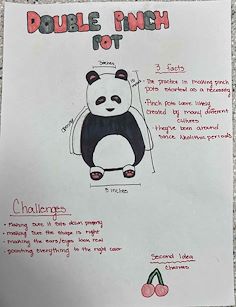 DOUBLE PINCH
POT
3 Facts
- The practice in making pinch
pots started as a necessity
- Pinch pots were likely
created by many different
cultures
- they've been around
since Neolithic periods
5 inches
Challenges
- making sure it sits down properly
- making sure the shape is right
- making the ears/eyes look real
- painting everything to the right color
Second Idea
Cherries